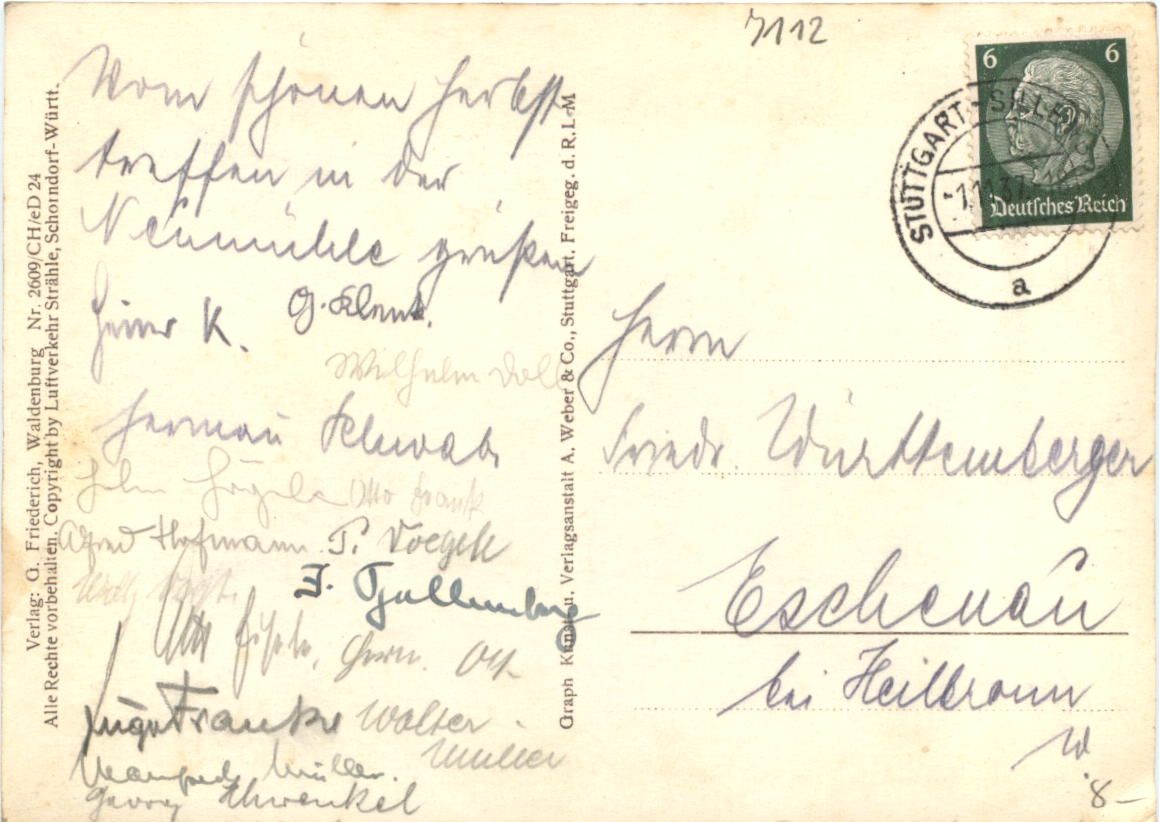 7112
Vom schönen Herbst
treffen in der
Neumühle grüßen
Heiner K. G. Klenk.
Wilhelm Doll
Herman Schwab
Otto Frank
Alfred Hofmann P. Voegele
Otto Eisele, Herm. Ott
Hugo Franke Walter
Müller
Manfred Müller.
Georg Schwenkel
Verlag: G. Friederich, Waldenburg Nr. 2609/CH/eD 24
Alle Rechte vorbehalten. Copyright by Luftverkehr Strähle, Schorndorf-Württ.
Graph Kunstau. Verlagsanstalt A. Weber & Co., Stuttgart, Freigeg. d. R.L.M
6 6
Deutsches Reich
STUTTGART-SILLENB
-1.11.37
a
Herrn
Friedr. Württemberger
Eschenau
bei Heilbronn
W
8-